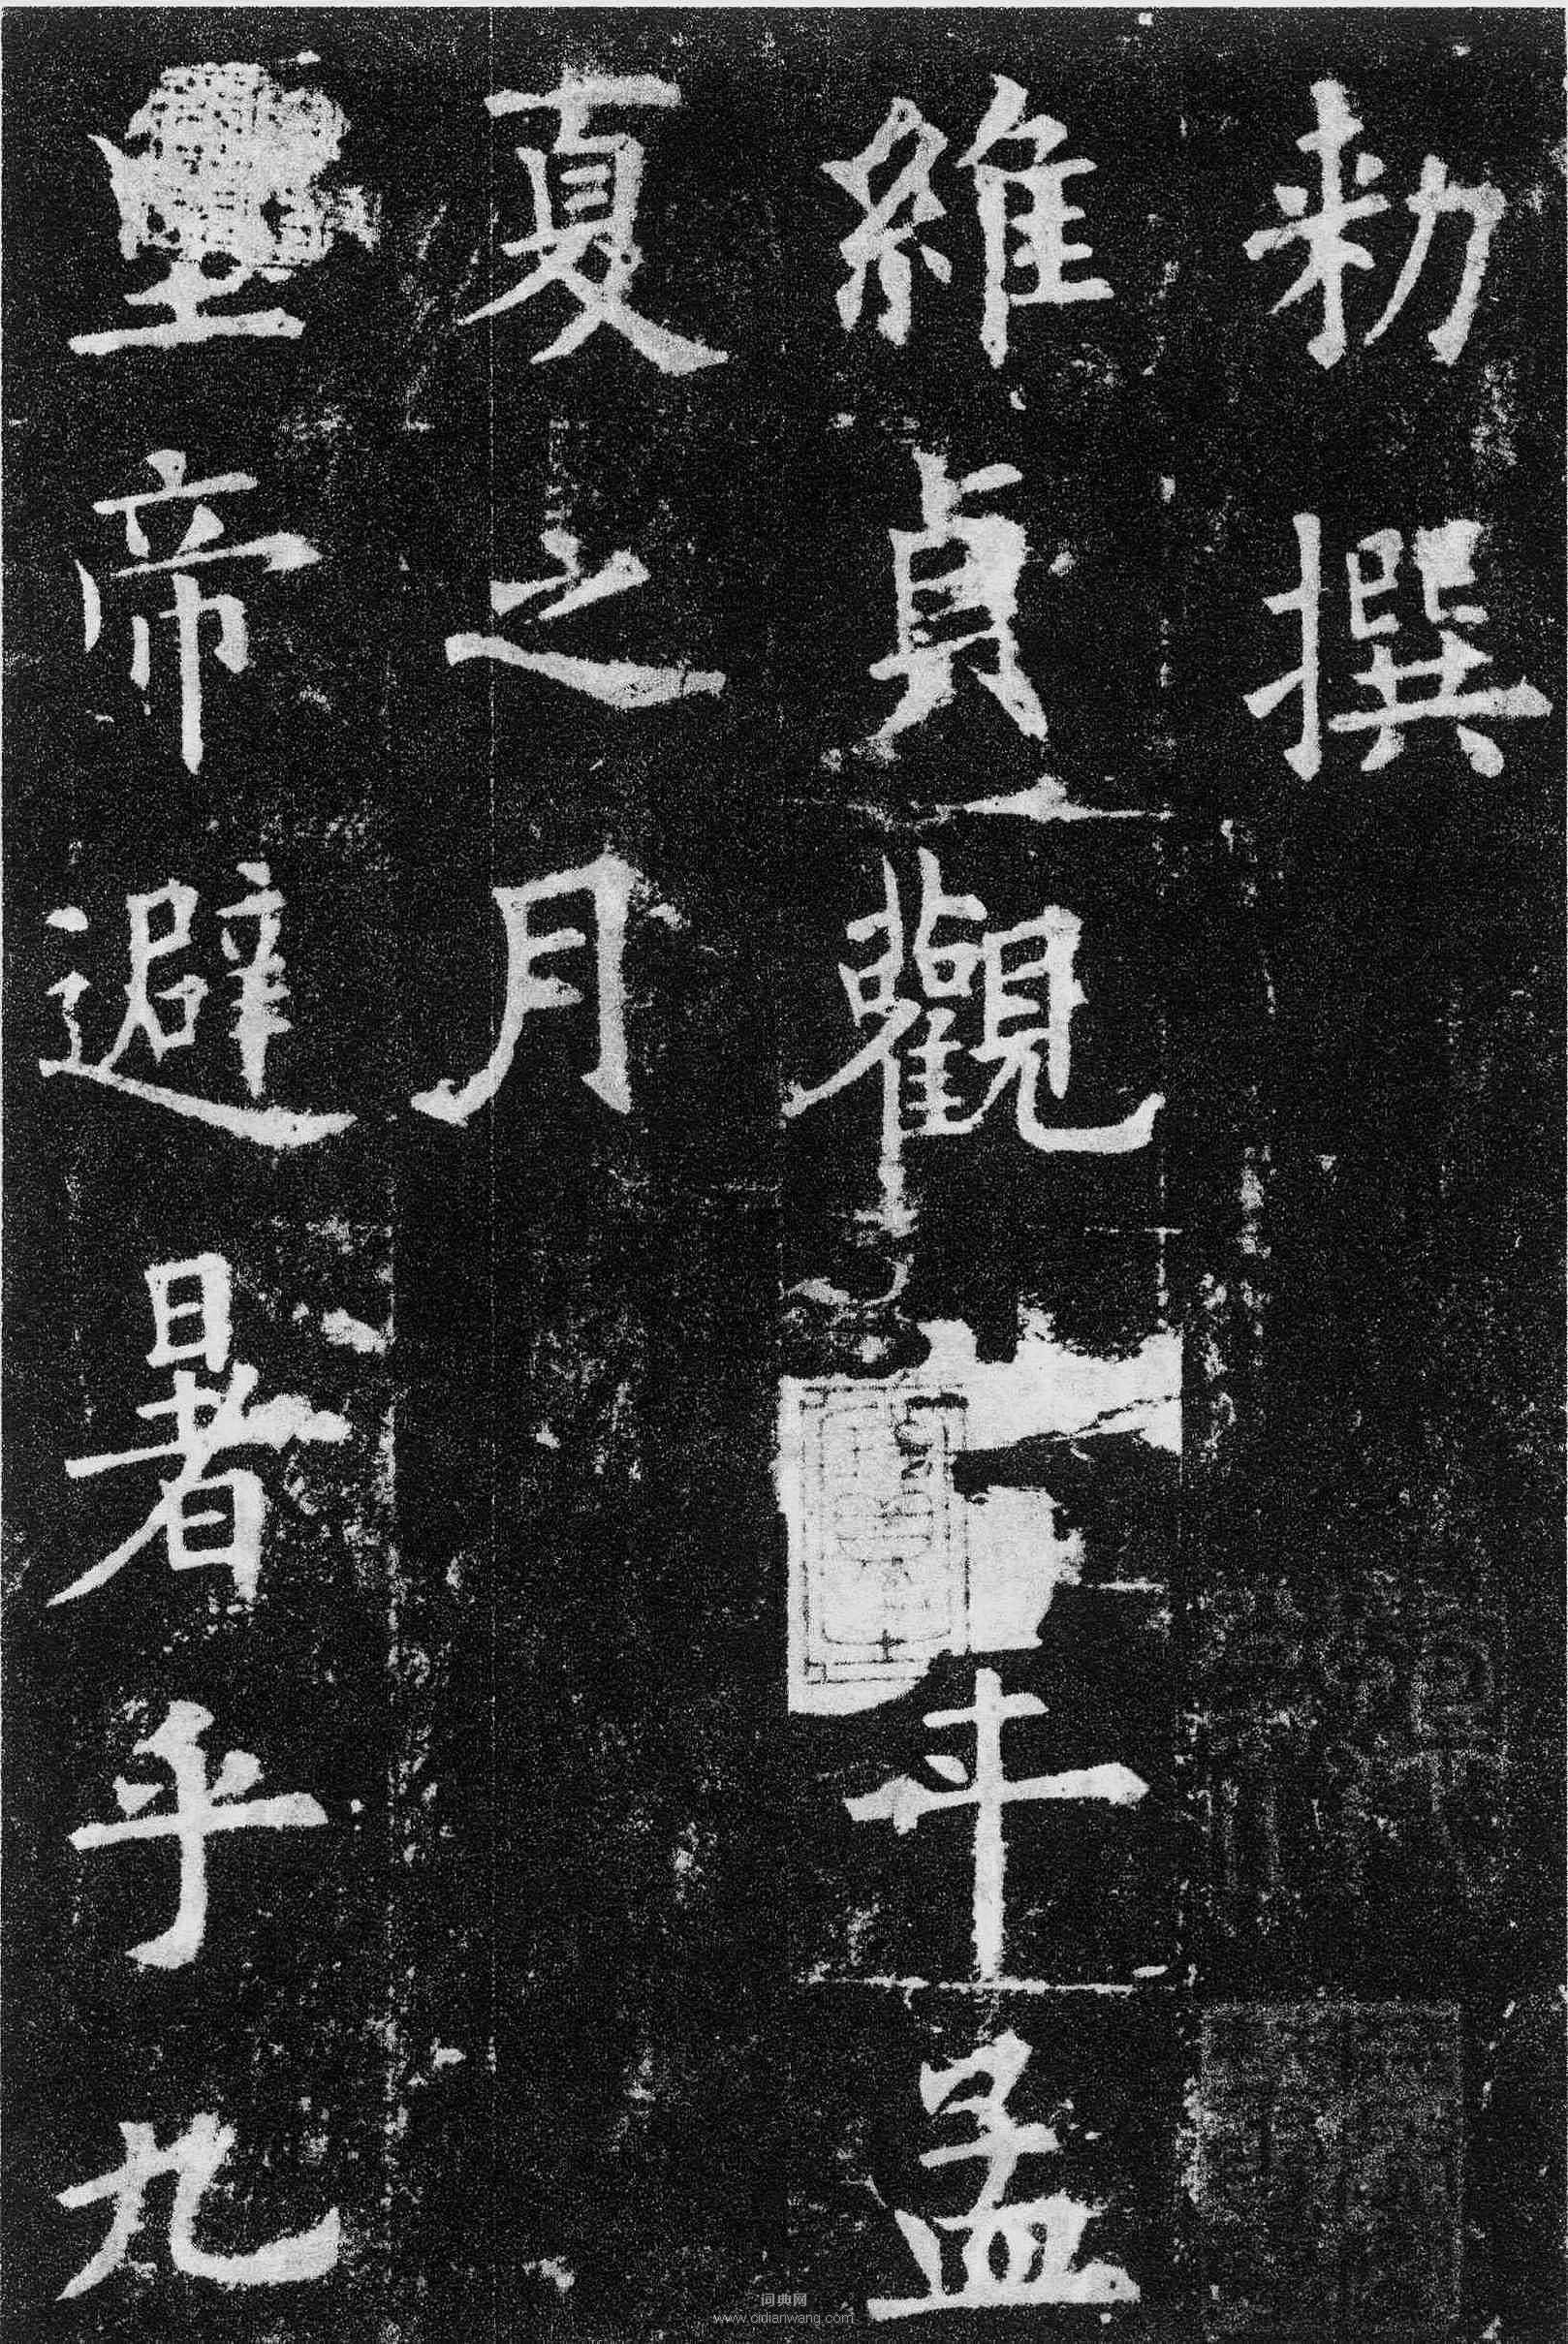 勅撰
維貞觀年孟
夏之月
皇帝避暑乎九
词典网
www.cidianwang.com